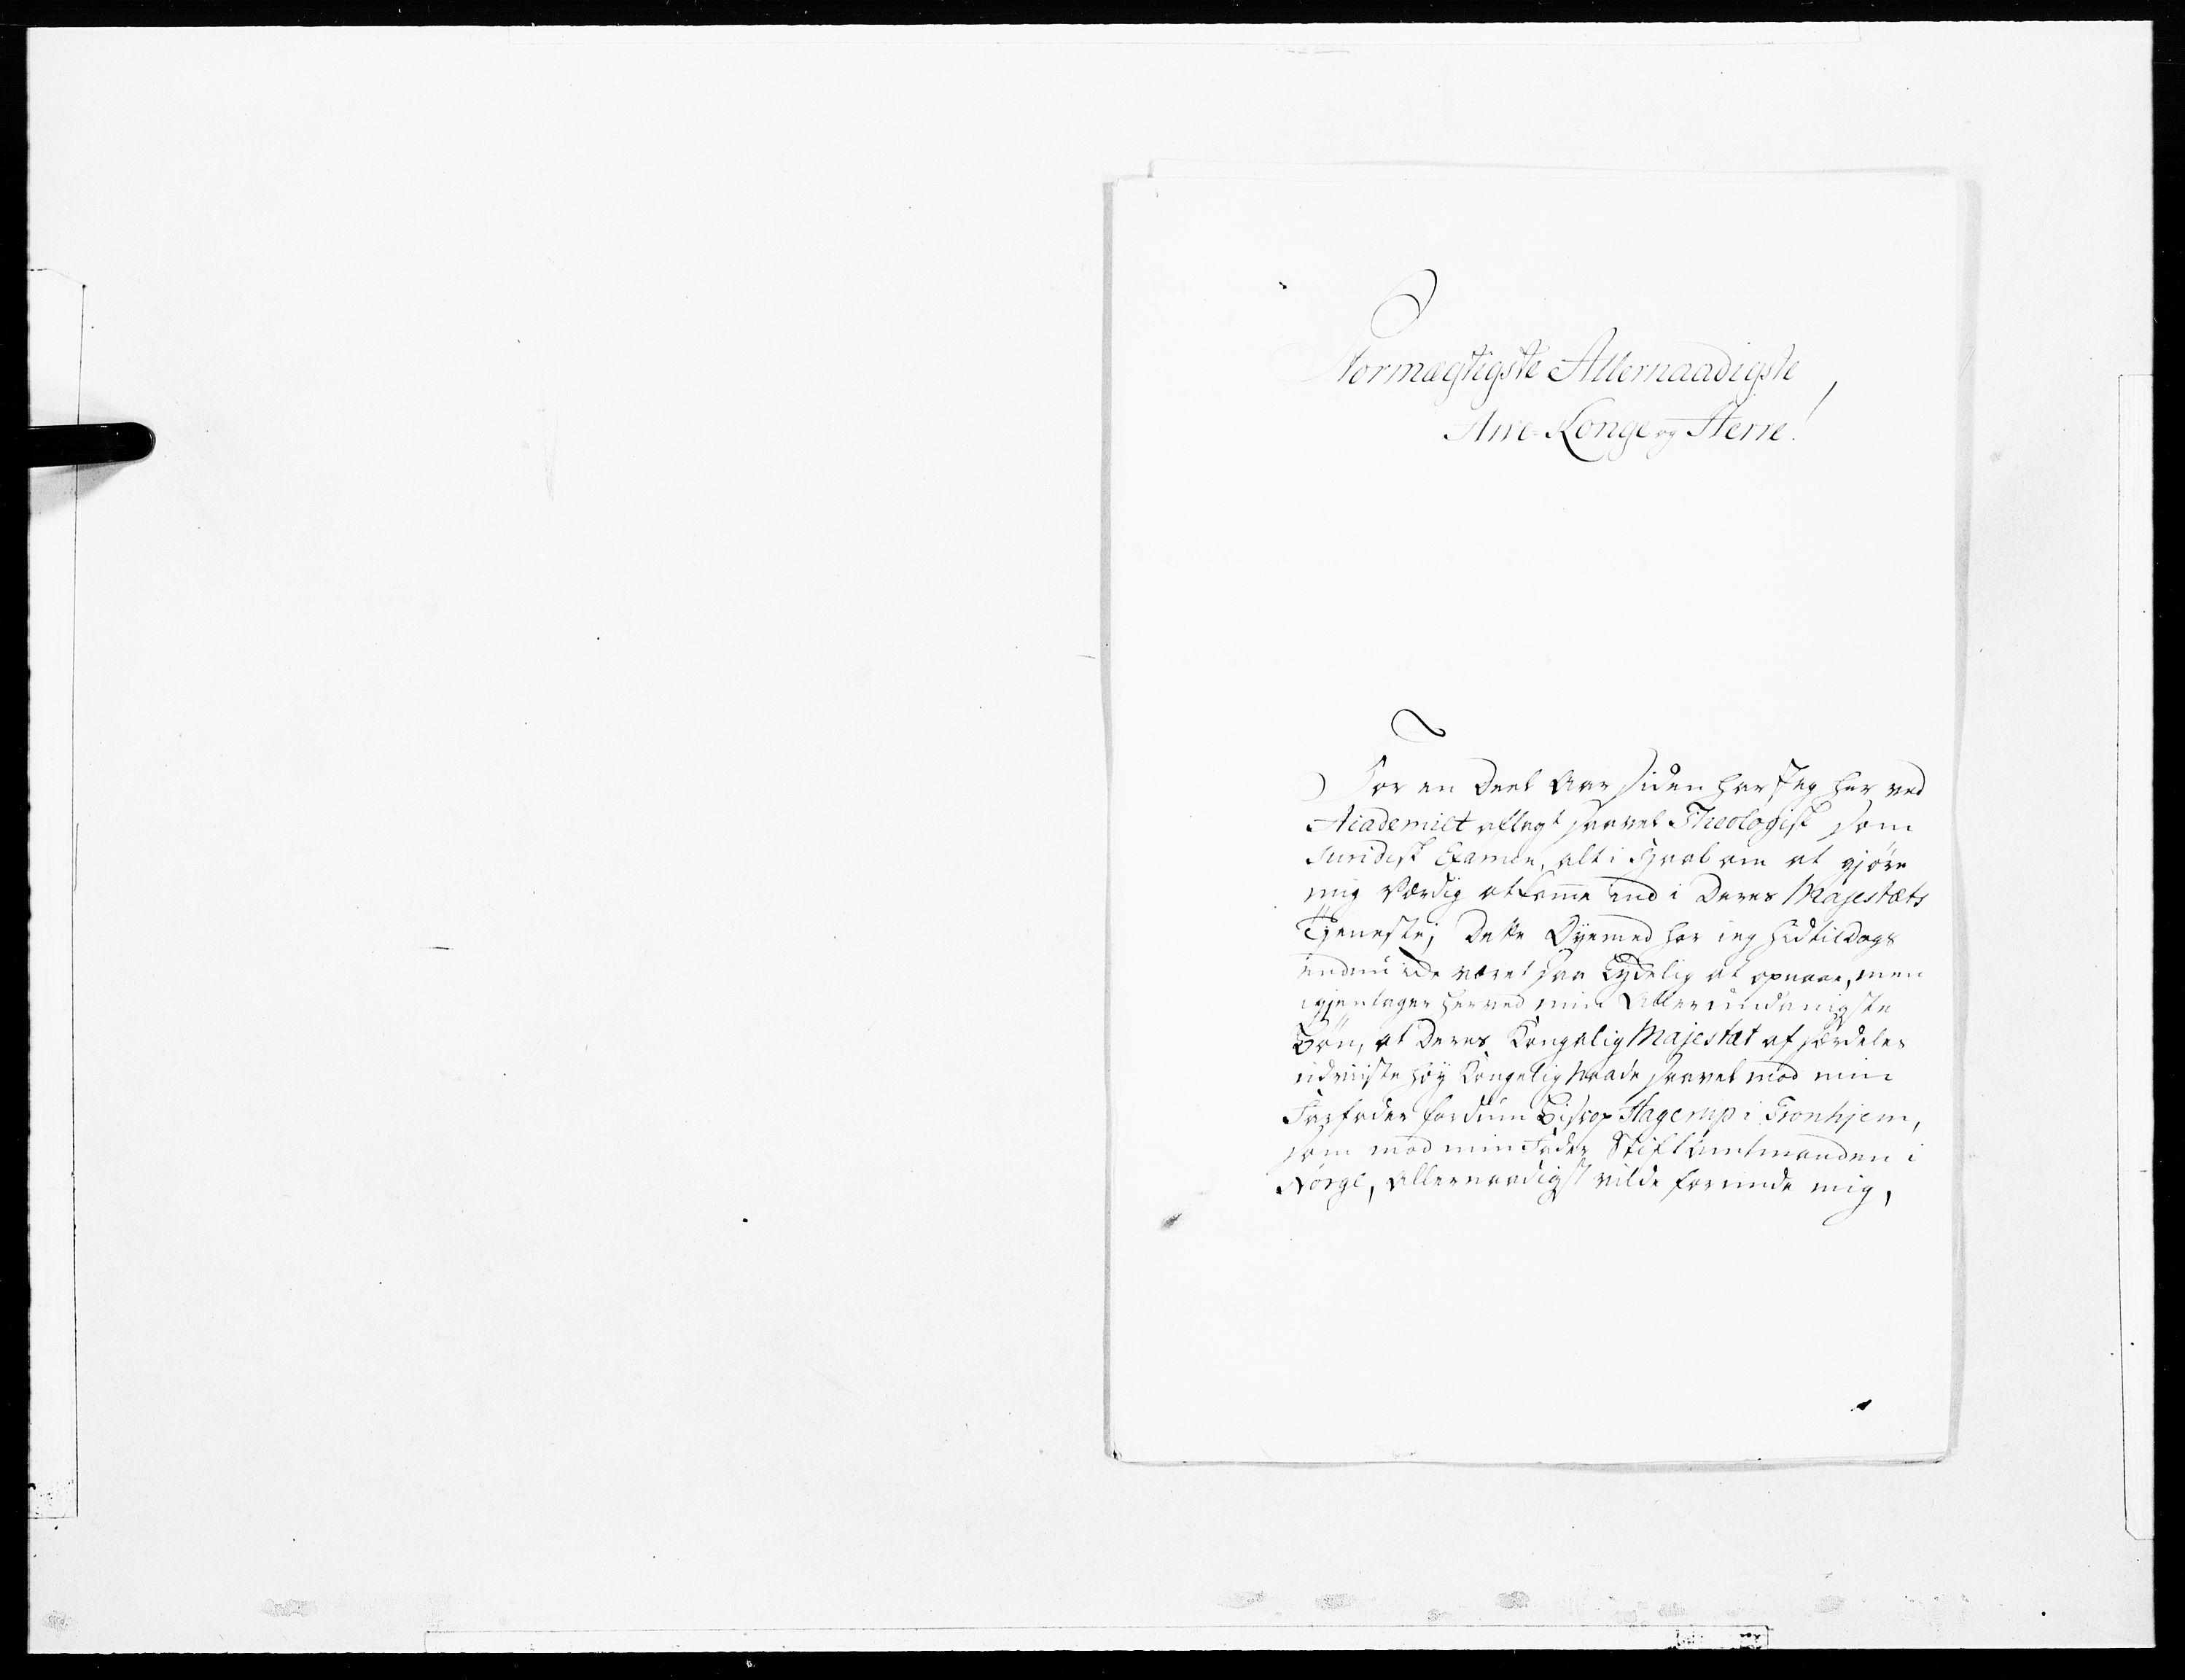 Stormægtigste Allernaadigste
Arve-Konge og Herre!
For en Deel Aar siden har Jeg her ved
Academiet aflagt saavel Theologisk som
Juridisk Examen, alt i Haab om at gjøre
mig Værdig at komme ind i Deres Majestæts
Tjeneste; Dette Øyemed har ieg hidtildags
endnu icke været saa Lydelig at opnaae, men
igjentager herved min Allerunderdanigste
Bøn, at Deres Kongelig Majestæt af særdeles
udviiste høy Kongelig Naade saavel mod min
Farfader fordum Biscop Hagerup i Tronhjem,
som mod min Fader Stiftamtmanden i
Norge, Allernaadigst vilde forunde mig,